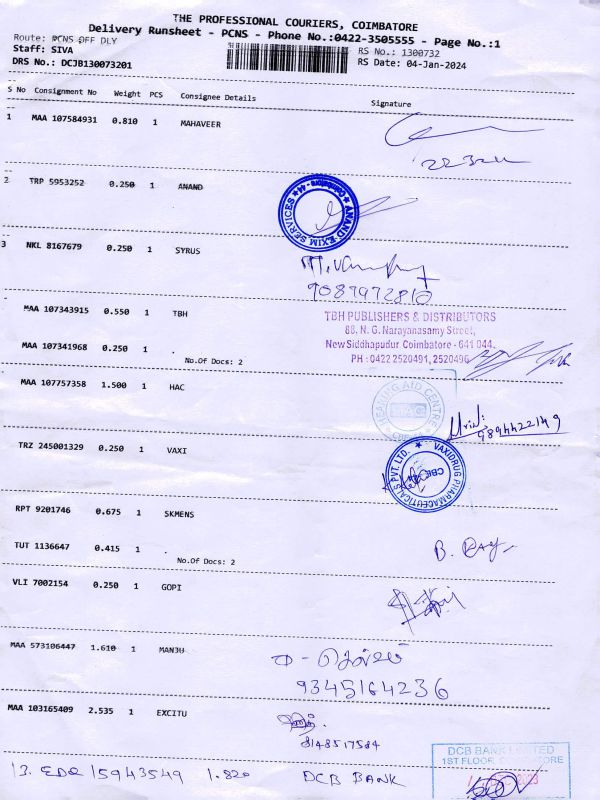 THE PROFESSIONAL COURIERS, COIMBATORE
Delivery Runsheet - PCNS - Phone No.:0422-3505555 - Page No.:1
Route: PCNS OFF DLY
RS No.: 1300732
Staff: SIVA
RS Date: 04-Jan-2024
DRS No.: DCJB130073201
S No Consignment No Weight PCS Consignee Details Signature
1 MAA 107584931 0.810 1 MAHAVEER
2 TRP 5953252 0.250 1 ANAND
ANAND EXIM SERVICES ★ Coimbatore - 44 ★
3 NKL 8167679 0.250 1 SYRUS
9089972810
MAA 107343915 0.550 1 TBH
TBH PUBLISHERS & DISTRIBUTORS
88, N. G. Narayanasamy Street,
New Siddhapudur Coimbatore - 641 044.
MAA 107341968 0.250 1 .
PH : 0422 2520491, 2520496
No.Of Docs: 2
MAA 107757358 1.500 1 HAC
HEARING AID CENTRE
HAC
9894422149
TRZ 245001329 0.250 1 VAXI
VAXIDRUG PHARMACEUTICALS PVT. LTD. ★
CBE
RPT 9201746 0.675 1 SKMENS
TUT 1136647 0.415 1 .
No.Of Docs: 2
VLI 7002154 0.250 1 GOPI
MAA 573106447 1.610 1 MANJU
9345164236
MAA 103165409 2.535 1 EXCITU
8148517584
DCB BANK LIMITED
1ST FLOOR,
13. EDQ 15943549 1.820 DCB BANK